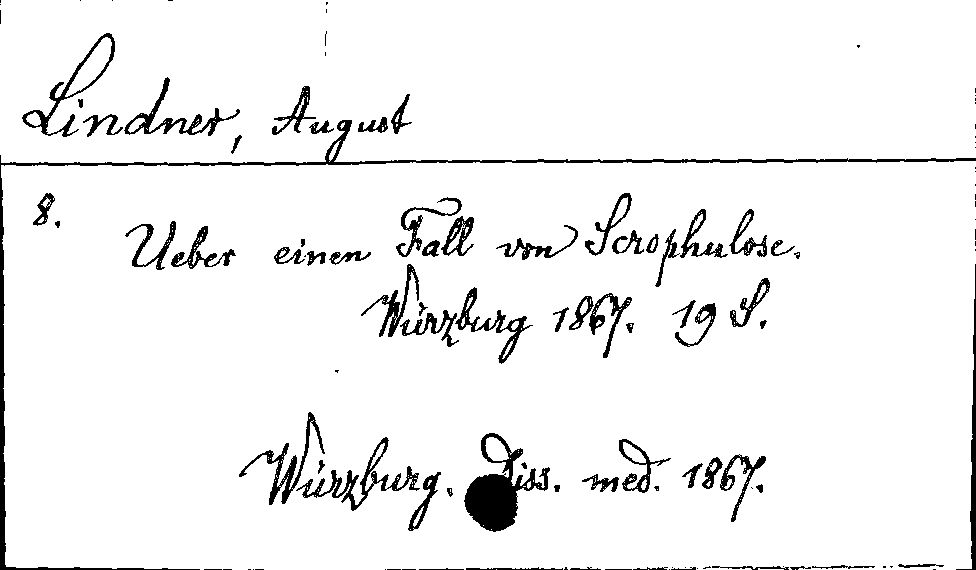 Lindner, August
8.
Ueber einen Fall von Scrophulose.
Würzburg 1867. 19 S.
Würzburg. Diss. med. 1867.